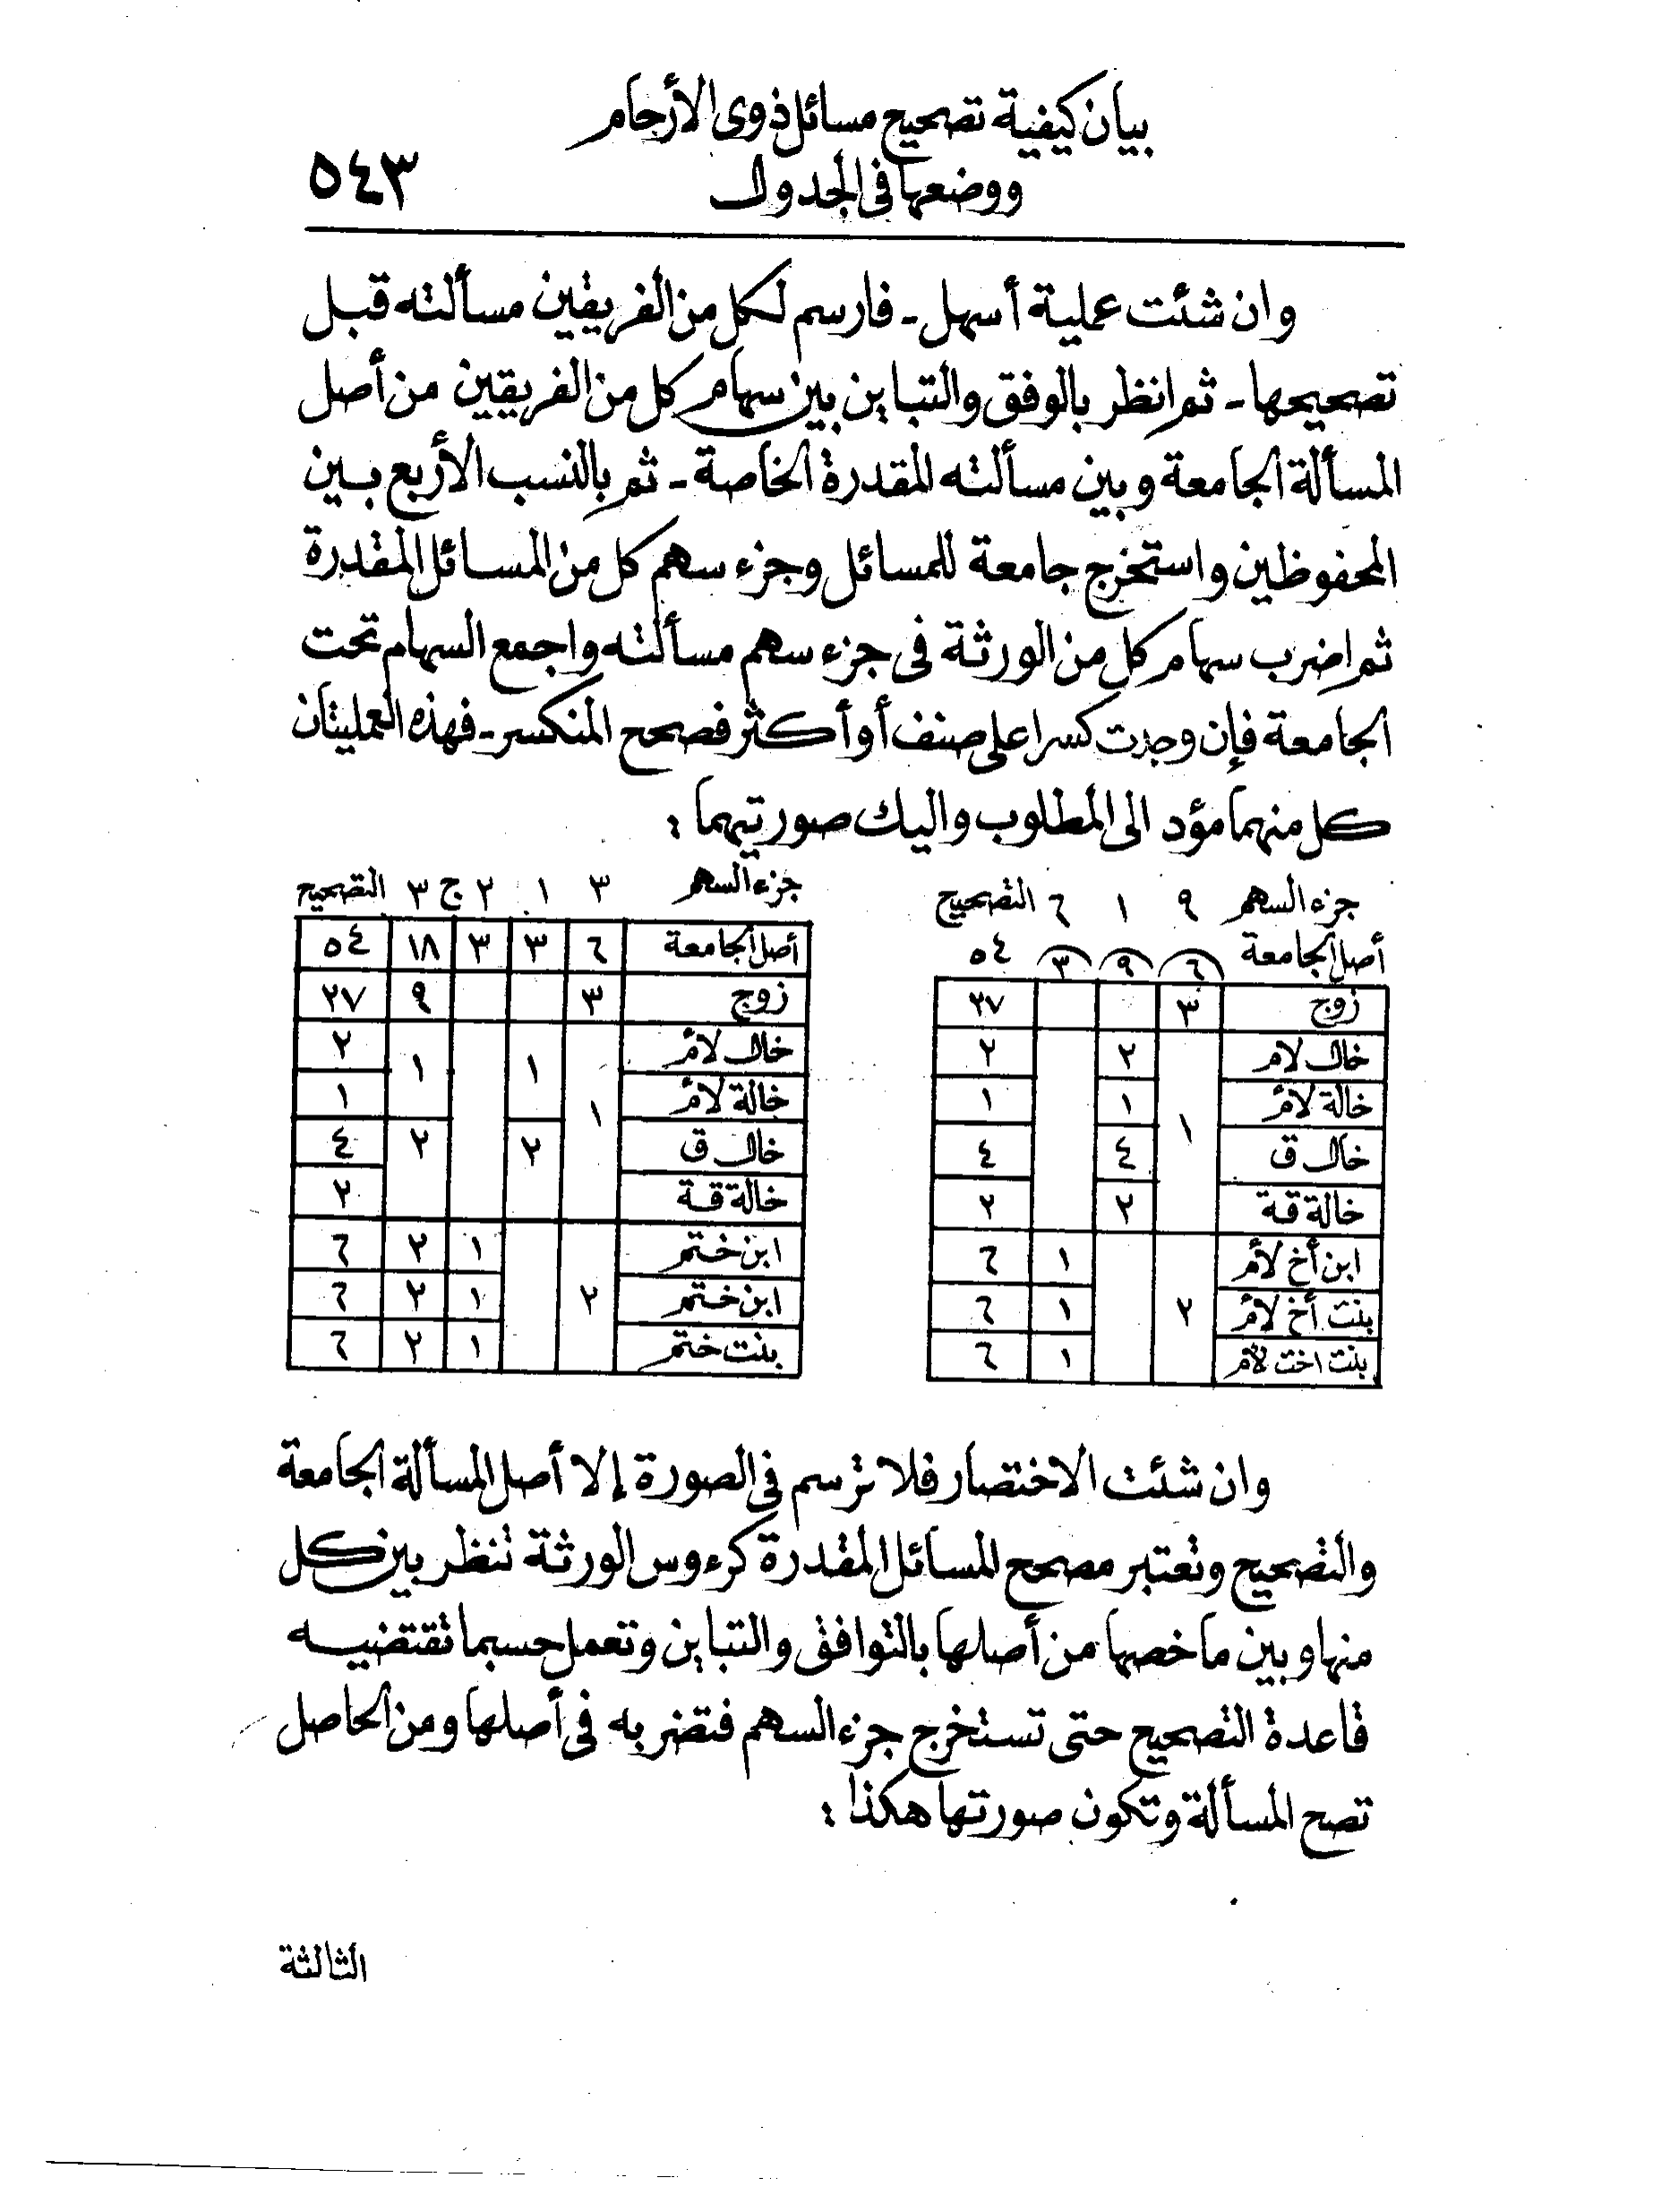 بيان كيفية تصحيح مسائل ذوى الأرحام
ووضعها فى الجدول
٥٤٣
وان شئت عملية أسهل - فارسم لكل من الفريقين مسألته قبل
تصحيحها - ثم انظر بالوفق والتباين بين سهام كل من الفريقين من أصل
المسألة الجامعة وبين مسألته المقدرة الخاصة - ثم بالنسب الأربع بين
المحفوظين واستخرج جامعة للمسائل وجزء سهم كل من المسائل المقدرة
ثم اضرب سهام كل من الورثة فى جزء سهم مسألته واجمع السهام تحت
الجامعة فإن وجدت كسرا على صنف أو أكثر فصحح المنكسر - فهذه العمليتان
كل منهما مؤد الى المطلوب واليك صورتيهما :
جزء السهم ٩ ١ ٦ التصحيح
أصل الجامعة ٦ ٩ ٣ ٥٤
زوج ٣ ٢٧
خال لام ١ ٢ ٢
خالة لأم ١ ١
خال ق ٤ ٤
خالة قة ٢ ٢
ابن أخ لأم ٢ ١ ٦
بنت أخ لأم ١ ٦
بنت اخت لأم ١ ٦
جزء السهم ٣ ١ ٢ ج ٣ التصحيح
أصل الجامعة ٦ ٣ ٣ ١٨ ٥٤
زوج ٣ ٩ ٢٧
خال لأم ١ ١ ١ ٢
خالة لأم ١
خال ق ٢ ٢ ٤
خالة قة ٢
ابن ختم ٢ ١ ٢ ٦
ابن ختم ١ ٢ ٦
بنت ختم ١ ٢ ٦
وان شئت الاختصار فلا ترسم فى الصورة إلا أصل المسألة الجامعة
والتصحيح وتعتبر مصحح المسائل المقدرة كرءوس الورثة تنظر بين كل
منها وبين ما خصها من أصلها بالتوافق والتباين وتعمل حسبما تقتضيه
قاعدة التصحيح حتى تستخرج جزء السهم فتضربه فى أصلها ومن الحاصل
تصح المسألة وتكون صورتها هكذا :
الثالثة